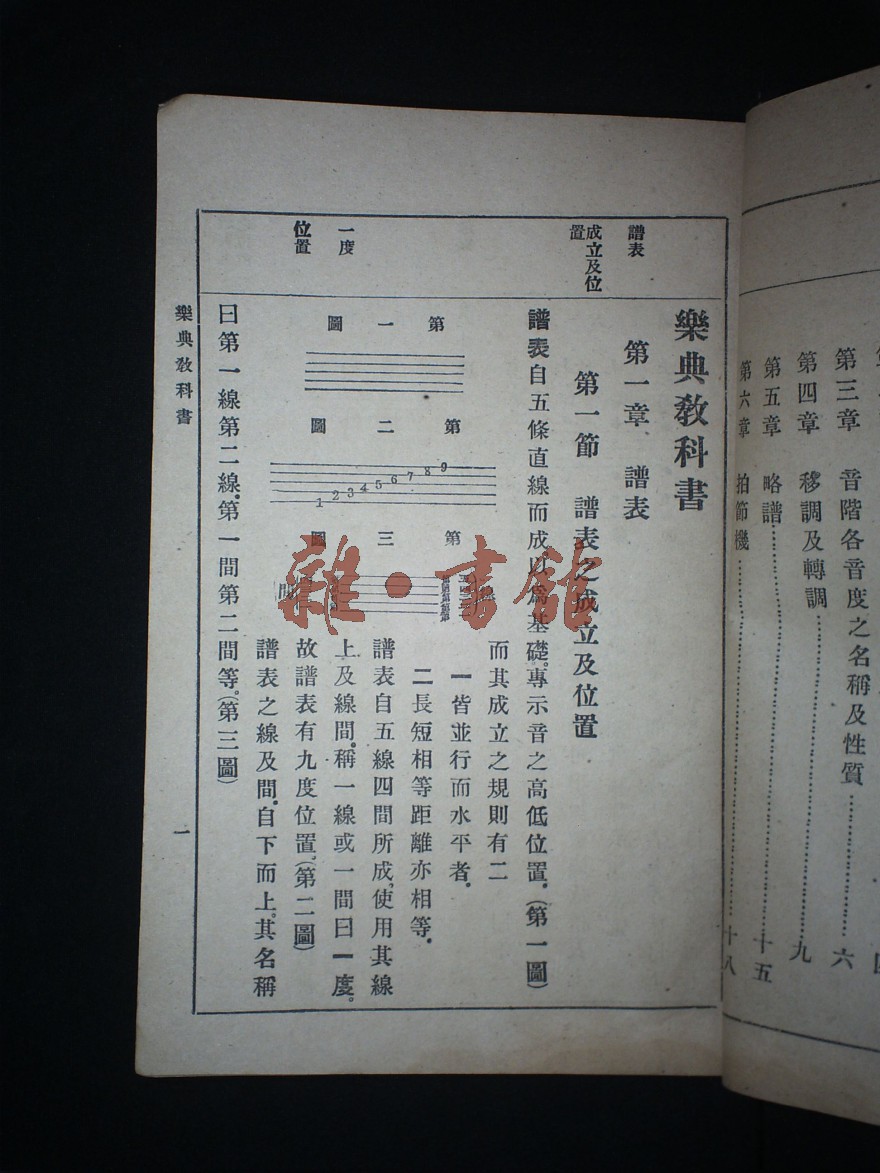 第三章　音階各音度之名稱及性質……六
第四章　移調及轉調……九
第五章　略譜……十五
第六章　拍節機……十八
樂典教科書
第一章　譜表
第一節　譜表之成立及位置
譜表
成立及位
置
一度
位置
譜表自五條直線而成、以爲基礎。專示音之高低位置。(第一圖)
而其成立之規則有二
一皆並行而水平者。
二長短相等距離亦相等。
譜表自五線四間所成、使用其線
上及線間。稱一線或一間曰一度。
故譜表有九度位置。(第二圖)
譜表之線及間。自下而上。其名稱
曰第一線第二線。第一間第二間等。(第三圖)
第一圖
第二圖
1 2 3 4 5 6 7 8 9
第三圖
線
間
樂典教科書
一
雜·書館